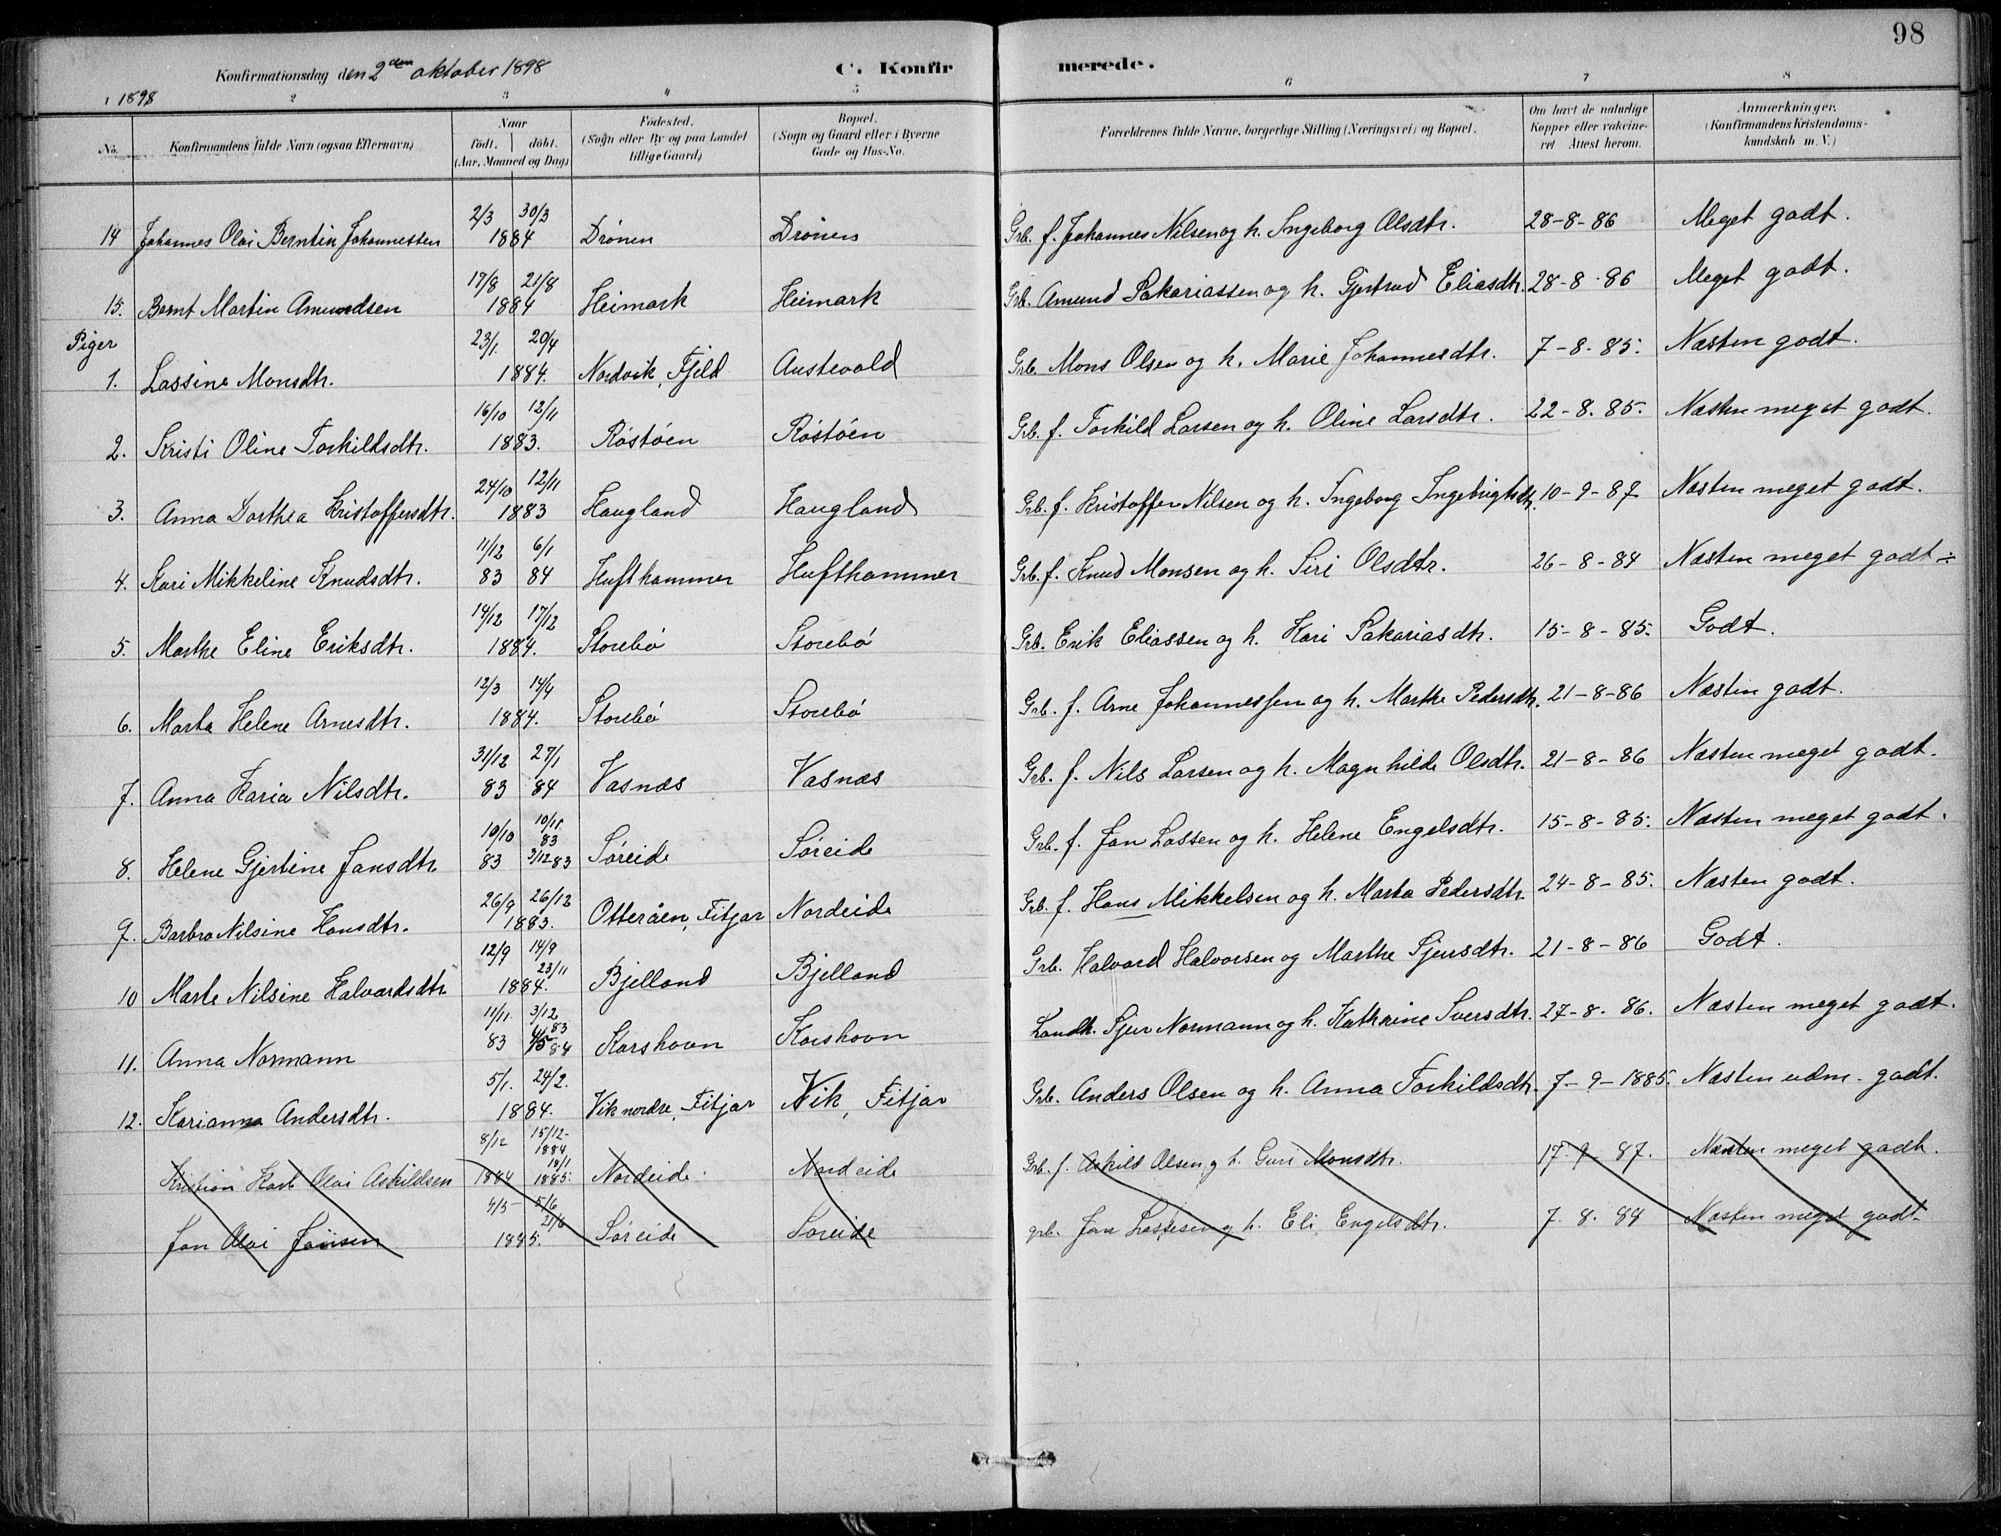 98
Konfirmationsdag den 2den oktober 1898
C. Konfirmerede.
1 1898 2 3 4 5 6 7 8
No.
Konfirmandens fulde Navn (ogsaa Efternavn)
Naar
født. døbt.
(Aar, Maaned og Dag)
Fødested.
(Sogn eller By og paa Landet
tillige Gaard)
Bopæl.
(Sogn og Gaard eller i Byerne
Gade og Hus-No.
Forældrenes fulde Navne, borgerlige Stilling (Næringsvei) og Bopæl.
Om havt de naturlige
Kopper eller vakcine-
ret Attest herom.
Anmærkninger.
(Konfirmandens Kristendoms-
kundskab m. V.)
14 Johannes Olai Berntin Johannessen 2/3 30/3 1884 Drönen Drönen Grb. f. Johannes Nilsen og h. Ingeborg Olsdtr. 28-8-86 Meget godt.
15. Bernt Martin Amundsen 17/8 21/8 1884 Heimark Heimark Grb. Amund Sakariassen og h. Gjertrud Eliasdtr. 28-8-86 Meget godt.
Piger
1. Lassine Monsdtr. 23/1. 20/4 1884. Nordvik, Fjeld Austevold Grb. Mons Olsen og h. Marie Johannesdtr. 7-8-85. Næsten godt.
2. Kristi Oline Torkildsdtr. 16/10 12/11 1883. Röstöen Röstöen Grb. f. Torkild Larsen og h. Oline Larsdtr. 22-8.85. Næsten meget godt.
3. Anna Dorthea Kristoffersdtr. 24/10 12/11 1883 Haugland Haugland Grb. f. Kristoffer Nilsen og h. Ingeborg Ingebrigtsdtr. 10-9-87 Næsten meget godt.
4. Kari Mikkeline Knudsdtr. 11/12 83 6/1 84 Hufthammer Hufthammer Grb. f. Knud Monsen og h. Siri Olsdtr. 26-8-84 Næsten meget godt ÷
5. Marthe Eline Eriksdtr. 14/12 17/12 1884. Storebö Storebö Grb. Erik Eliassen og h. Kari Sakariasdtr. 15-8-85. Godt.
6. Marta Helene Arnesdtr. 12/3 14/4 1884. Storebö Storebö Grb. f. Arne Johannessen og h. Marthe Pedersdtr. 21-8-86 Næsten godt.
7. Anna Karia Nilsdtr. 31/12 83 27/1 84 Vasnæs Vasnæs Grb. f. Nils Larsen og h. Magnhilde Olsdtr. 21-8-86 Næsten meget godt.
8. Helene Gjertine Jansdtr. 10/10 83 10/11 83 2/12 83 Söreide Söreide Grb. f. Jan Lassen og h. Helene Engelsdtr. 15-8-85. Næsten meget godt.
9. Barbro Nilsine Hansdtr. 26/9 26/12 1883. Otteråen, Fitjar Nordeide Grb. f. Hans Mikkelsen og h. Marta Pedersdtr. 24-8-85. Næsten godt.
10 Marte Nilsine Halvardsdtr 12/9 14/9 23/11 1884. Bjelland Bjelland Grb. Halvard Halvorsen og Marthe Sjursdtr. 21-8-86 Godt.
11. Anna Normann 11/11. 83 3/12 83 4/5 84 Korshavn Korshavn Landh. Sjur Normann og h. Kathrine Sversdtr. 27-8-86. Næsten meget godt.
12. Karianna Andersdtr. 5/1. 24/2. 1884. Vik nordre, Fitjar Vik, Fitjar Grb. Anders Olsen og h. Anna Torkildsdtr. 7-9-1885. Næsten udm. godt.
Kristian Karl Olai Askildsen 8/12 1884 15/12-1884 18/1 1885. Nordeide Nordeide Grb. f. Askild Olsen g h. Guri Monsdtr. 17-9-87. Næsten meget godt.
Jan Olai Jansen 4/5- 5/6 21/6 1885. Söreide Söreide grb. Jan Lassesen g h. Eli Engelsdtr. 7.8.87 Næsten meget godt.